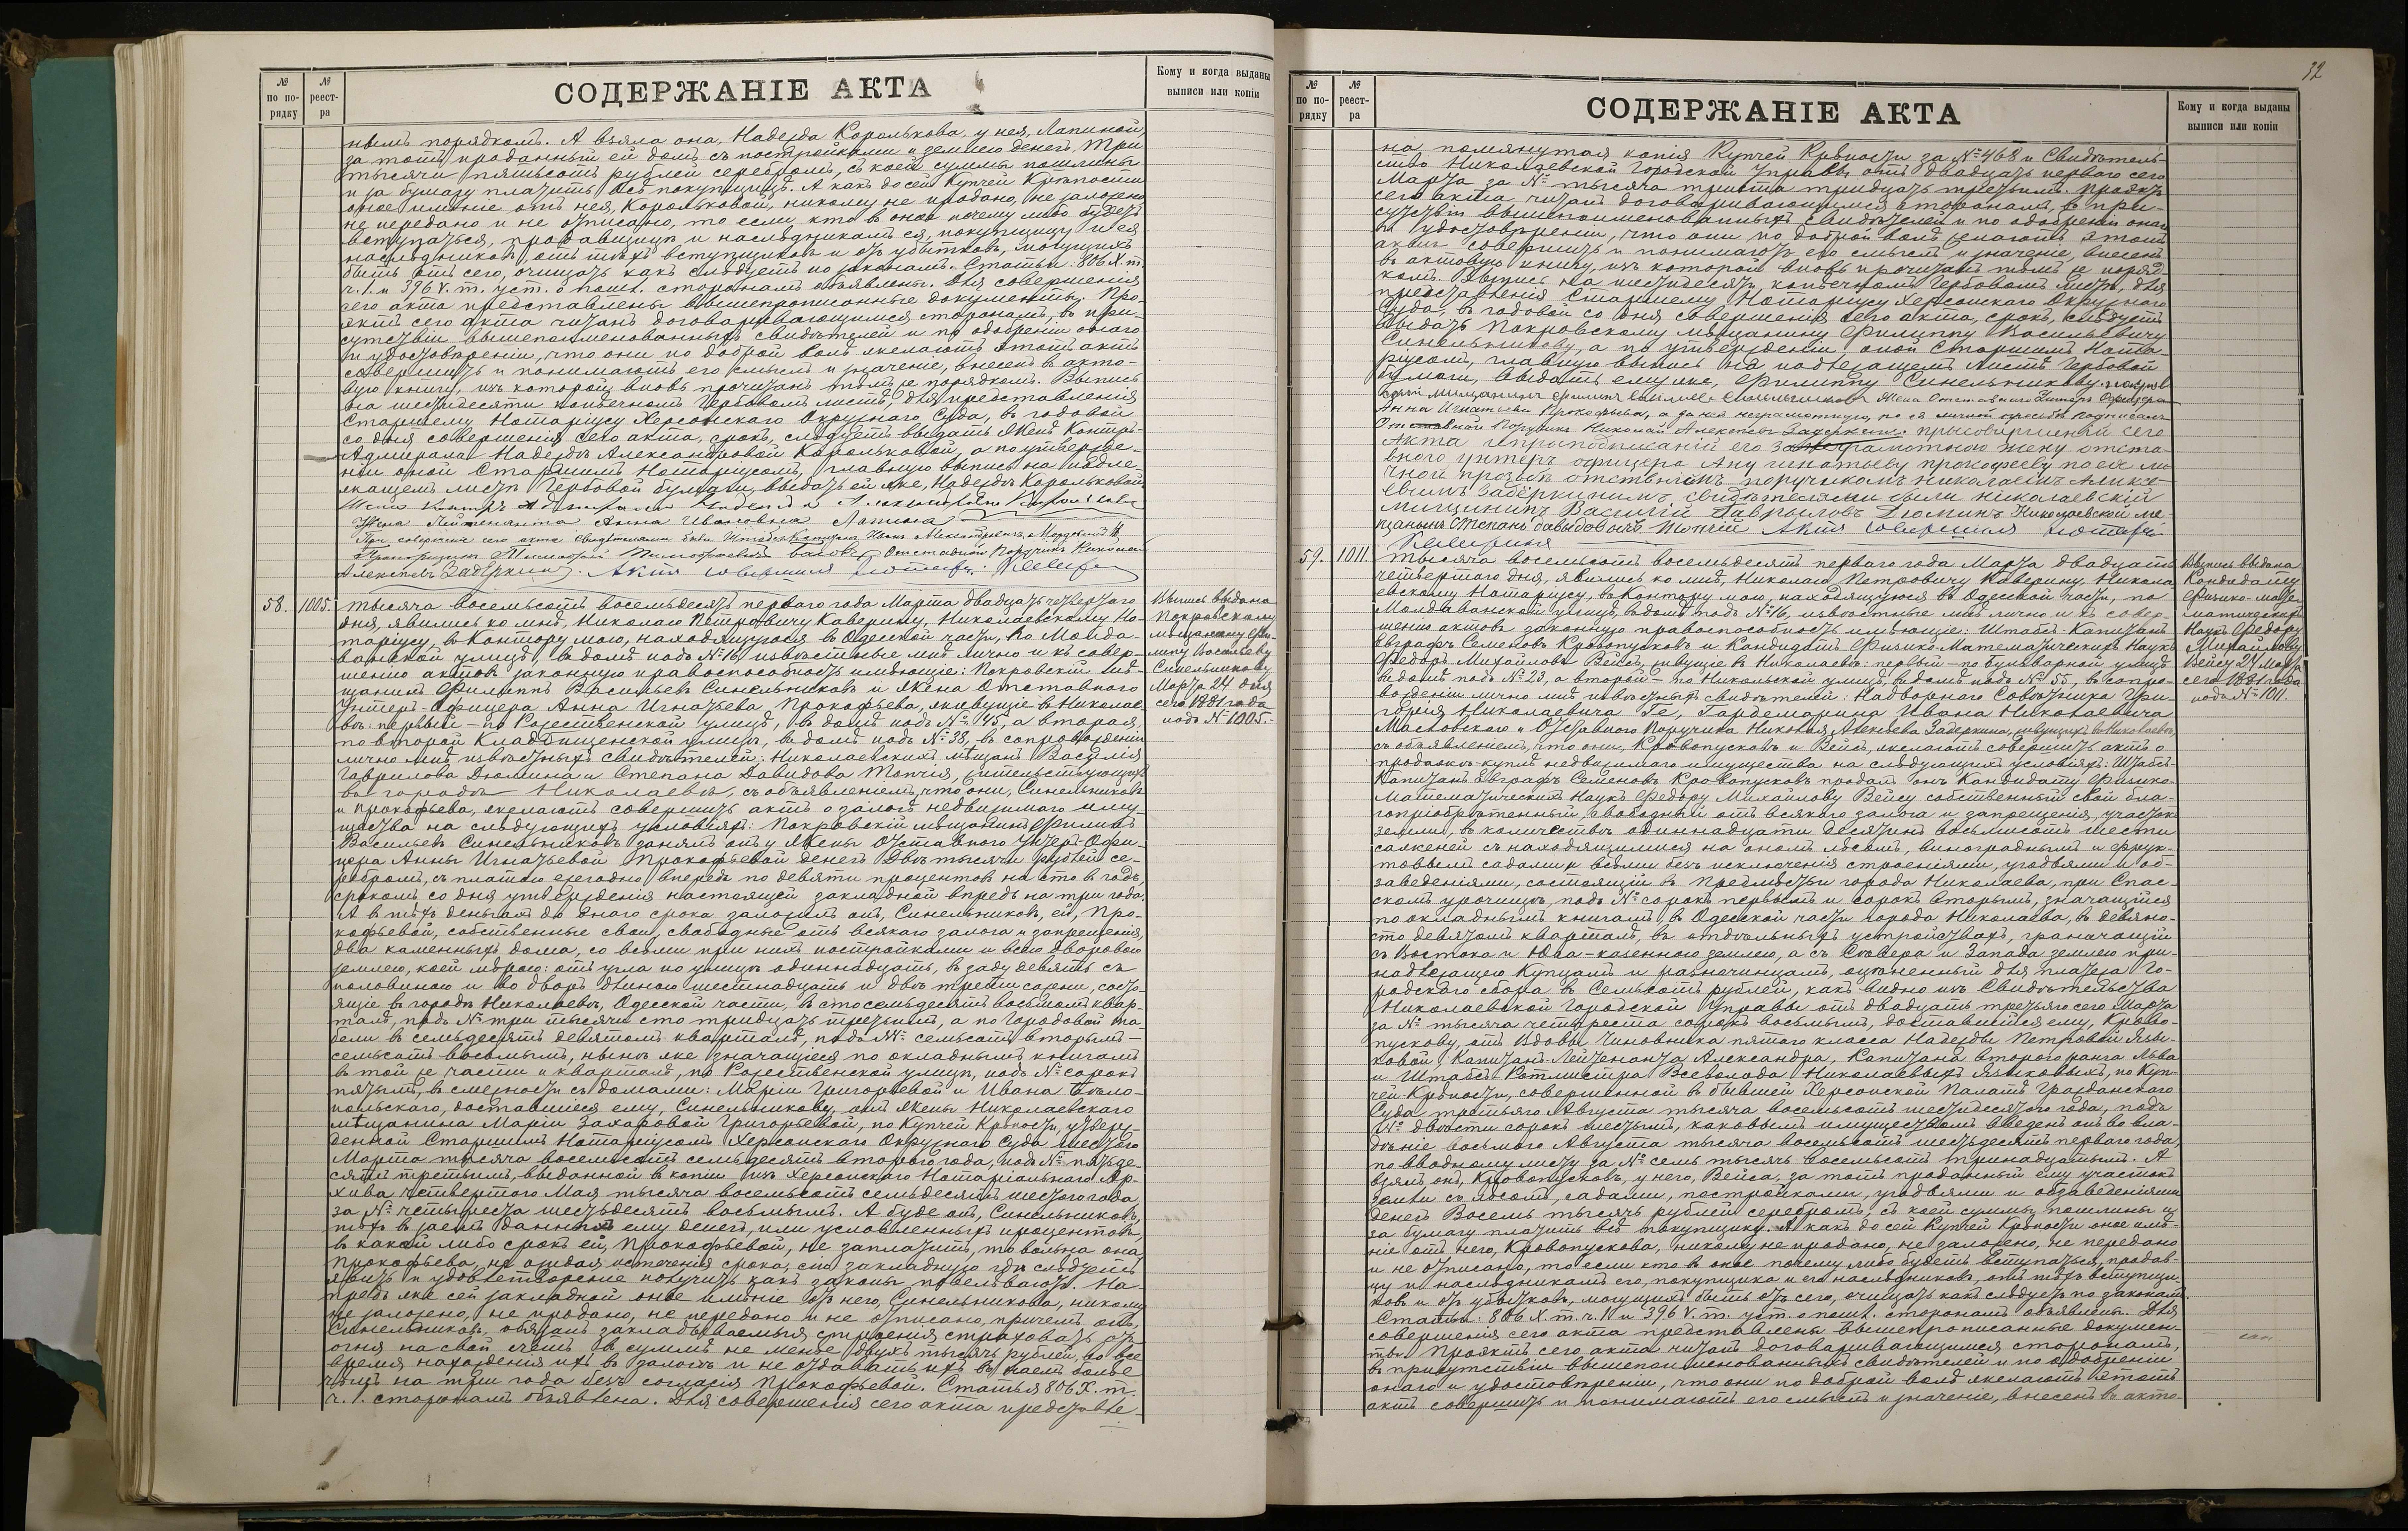 №
по по-
рядку
№
реест-
ра
СОДЕРЖАНІЕ АКТА
Кому и когда выданы
выписи или копіи
нымъ порядкомъ. А взяла она, Надежда Королькова, у нея, Лапиной,
за тотъ проданный ей домъ съ постройками и землею денегъ Три
тысячи пятьсотъ рублей серебромъ, съ коей суммы пошлины
и за бумагу платить ей покупщицѣ. А какъ до сей Купчей Крѣпости
оное имѣніе отъ нея, Корольковой, никому не продано, не заложено
не передано и не описано, то если кто въ оное почему либо будетъ
вступаться, продавщицѣ и наслѣдникамъ ея, покупщицу и ея
наслѣдниковъ отъ тѣхъ вступщиковъ и отъ убытковъ, могущихъ
быть отъ сего, очищать какъ слѣдуетъ по законамъ. Статьи: 806 X т.
ч. 1. и 396 V. т. уст. о пошл. сторонамъ объявлены. Для совершенія
сего акта представлены вышепрописанные документы. Про-
эктъ сего акта читанъ договаривающимся сторонамъ, въ при-
сутствіи вышепоименованныхъ свидѣтелей и по одобреніи онаго
и удостовѣреніи, что они по доброй волѣ желаютъ этотъ актъ
совершить и понимаютъ его смыслъ и значеніе, внесенъ въ акто-
вую книгу, изъ которой вновь прочитанъ тѣмъ же порядкомъ. Выпись
на шестидесяти копѣечномъ Гербовомъ листѣ, для представленія
Старшему Нотаріусу Херсонскаго Окружнаго Суда, въ годовой
со дня совершенія сего акта, срокъ, слѣдуетъ выдать Женѣ Контръ-
Адмирала Надеждѣ Александровой Корольковой, а по утвержде-
ніи оной Старшимъ Нотаріусомъ, главную выпись на надле-
жащемъ листѣ Гербовой бумаги, выдать ей же, Надеждѣ Корольковой
Жена Контръ Адмирала Надежда Александрова Королькова
Жена Лейтенанта Анна Ивановна Лапина
При совершеніи сего акта свидѣтелями были Штабсъ Капитанъ Иванъ Александровъ
Отставной Поручикъ Николай
Алексѣевъ Задеркинъ. Актъ совершилъ Нотаріусъ Каверинъ
58.
1005.
Тысяча восемьсотъ восемьдесятъ перваго года Марта двадцать четвертаго
дня, явились ко мнѣ, Николаю Петровичу Каверину, Николаевскому Но-
таріусу, въ Контору мою, находящуюся въ Одесской части, по Молда-
ванской улицѣ, въ домѣ подъ № 16, извѣстные мнѣ лично и къ совер-
шенію актовъ законную правоспособность имѣющіе: Покровскій мѣ-
щанинъ Филиппъ Васильевъ Синельниковъ и Жена Отставнаго
Унтеръ-Офицера Анна Игнатьева Прокофьева, живущіе въ Николае-
вѣ: первый – по Рождественской улицѣ, въ домѣ подъ № 45, а вторая,
по второй Кладбищенской улицѣ, въ домѣ подъ № 38, въ сопровожденіи
лично мнѣ извѣстныхъ свидѣтелей: Николаевскихъ мѣщанъ Василія
Гаврилова Дюмина и Степана Давидова Топчія, жительствующихъ
въ городѣ Николаевѣ, съ объявленіемъ, что они, Синельниковъ
и Прокофьева, желаютъ совершить актъ о залогѣ недвижимаго иму-
щества на слѣдующихъ условіяхъ: Покровскій мѣщанинъ Филиппъ
Васильевъ Синельниковъ занялъ онъ у Жены Отставнаго Унтеръ-Офи-
цера Анны Игнатьевой Прокофьевой денегъ Двѣ тысячи рублей се-
ребромъ, съ платою ежегодно впередъ по девяти процентовъ на сто въ годъ,
срокомъ со дня утвержденія настоящей закладной впредь на три года.
А въ тѣхъ деньгахъ до онаго срока заложилъ онъ, Синельниковъ, ей, Про-
кофьевой, собственные свои, свободные отъ всякаго залога и запрещенія,
два каменныхъ дома, со всѣми при нихъ постройками и всею дворовою
землею, коей мѣрою: отъ угла по улицѣ одиннадцать, въ заду девять съ
половиною и во дворъ длиною шестнадцать и двѣ трети сажени, состо-
ящіе въ городѣ Николаевѣ, Одесской части, въ сто семьдесятъ восьмомъ квар-
талѣ, подъ № три тысячи сто тридцать третьимъ, а по Городовой та-
бели въ семьдесятъ девятомъ кварталѣ, подъ №№ семьсотъ вторымъ –
семьсотъ восьмымъ, нынѣ же значащіеся по окладнымъ книгамъ
въ той же части и кварталѣ, по Рождественской улицѣ, подъ № сорокъ
пятымъ, въ смежности съ домами: Маріи Григорьевой и Ивана Бѣло-
польскаго, доставшіеся ему, Синельникову, отъ Жены Николаевскаго
мѣщанина Маріи Захаровой Григорьевой, по Купчей Крѣпости, утверж-
денной Старшимъ Нотаріусомъ Херсонскаго Окружнаго Суда шестаго
Марта тысяча восемьсотъ семьдесятъ втораго года, подъ № пятьде-
сятъ третьимъ, выданной въ копіи изъ Херсонскаго Нотаріальнаго Ар-
хива четвертаго Мая тысяча восемьсотъ семьдесятъ шестаго года
за № четыреста шестьдесятъ восьмымъ. А буде онъ, Синельниковъ,
тѣхъ въ заемъ данныхъ ему денегъ, или условленныхъ процентовъ,
въ какой либо срокъ ей, Прокофьевой, не заплатитъ, то вольна она,
Прокофьева, не ожидая истеченія срока, сію закладную гдѣ слѣдуетъ
явить и удовлетвореніе получить какъ законы повелѣваютъ. На-
предь же сей закладной оное имѣніе отъ него, Синельникова, никому
не заложено, не продано, не передано и не описано, причемъ онъ,
Синельниковъ, обязанъ закладываемыя строенія страховать отъ
огня на свой счетъ въ суммѣ не менѣе двухъ тысячъ рублей, во все
время нахожденія ихъ въ залогѣ и не отдавать ихъ въ наемъ болѣе
чѣмъ на три года безъ согласія Прокофьевой. Статья 806 X. т.
ч. 1. сторонамъ объявлена. Для совершенія сего акта представле-
Выпись выдана
Покровскому
мѣщанину Фи-
липу Васильеву
Синельникову
Марта 24 дня
сего 1881 года
подъ № 1005.-
32
№
по по-
рядку
№
реест-
ра
СОДЕРЖАНІЕ АКТА
Кому и когда выданы
выписи или копіи
на помянутая копія Купчей Крѣпости за № 468 и Свидѣтель-
ство Николаевской Городской Управы отъ двадцать перваго сего
Марта за № тысяча триста тридцать третьимъ. Проэктъ
сего акта читанъ договаривающимся сторонамъ, въ при-
сутствіи вышепоименованныхъ свидѣтелей и по одобреніи онаго
и удостовѣреніи, что они по доброй волѣ желаютъ этотъ
актъ совершить и понимаютъ его смыслъ и значеніе, внесенъ
въ актовую книгу, изъ которой вновь прочитанъ тѣмъ же поряд-
комъ. Выпись на шестидесяти копѣечномъ Гербовомъ листѣ, для
представленія Старшему Нотаріусу Херсонскаго Окружнаго
Суда, въ годовой со дня совершенія сего акта, срокъ, слѣдуетъ
выдать Покровскому мѣщанину Филиппу Васильевичу
Синельникову, а по утвержденіи оной Старшимъ Нота-
ріусомъ, главную выпись на надлежащемъ листѣ Гербовой
бумаги, выдать ему же, Филиппу Синельникову. Покров-
скій мещанинъ Филипъ Васильевъ Синельниковъ Жена Отставного Унтеръ Офицера
Анна Игнатьева Прокофьева, а за нея неграмотную, по ея личной просьбѣ подписалъ
Отставной Поручикъ Николай Алексѣевъ Задеркинъ. При совершеніи сего
акта и приподписаніи его за неграмотною жену отста-
вного унтеръ офицера Ану Игнатьеву Прокофееву по ея ли
чной прозьбѣ отставнымъ поручикомъ Николаемъ Аликсе-
евымъ Задёркинымъ, свидѣтелями были Николаевскій
мищининъ Василій Гавриловъ Дюминъ Николаевской ме-
щанынъ Степанъ Давыдовъ Топчій Актъ совершилъ Нотаріусъ
Каверинъ
59.
1011.
Тысяча восемьсотъ восемьдесятъ перваго года Марта двадцать
четвертаго дня, явились ко мнѣ, Николаю Петровичу Каверину, Никола-
евскому Нотаріусу, въ Контору мою, находящуюся въ Одесской части, по
Молдаванской улицѣ, въ домѣ подъ № 16, извѣстные мнѣ лично и къ совер-
шенію актовъ законную правоспособность имѣющіе: Штабсъ-Капитанъ
Евграфъ Семеновъ Кровопусковъ и Кандидатъ Физико-Математическихъ Наукъ
Федоръ Михайловъ Вейсъ, живущіе въ Николаевѣ: первый – по бульварной улицѣ
въ домѣ подъ № 23, а второй – по Никольской улицѣ, въ домѣ подъ № 55, въ сопро-
вожденіи лично мнѣ извѣстныхъ свидѣтелей: Надворнаго Совѣтника Гри-
горія Николаевича Ге, Гардемарина Ивана Николаевича
Масловскаго и Отставнаго Поручика Николая Алексѣева Задеркина, живущихъ въ Николаевѣ,
съ объявленіемъ, что они, Кровопусковъ и Вейсъ, желаютъ совершить актъ о
продажѣ-куплѣ недвижимаго имущества на слѣдующихъ условіяхъ: Штабсъ-
Капитанъ Евграфъ Семеновъ Кровопусковъ продалъ онъ Кандидату Физико-
Математическихъ Наукъ Федору Михайлову Вейсу собственный свой бла-
гопріобрѣтенный, свободный отъ всякаго залога и запрещенія, участокъ
земли, въ количествѣ одиннадцати десятинъ восьмисотъ шести
саженей съ находящимися на ономъ лѣсомъ, винограднымъ и фрук-
товымъ садами и всѣми безъ исключенія строеніями, угодьями и об-
заведеніями, состоящій въ предмѣстьи города Николаева, при Спас-
скомъ урочищѣ, подъ № сорокъ первымъ и сорокъ вторымъ, значащійся
по окладнымъ книгамъ, въ Одесской части города Николаева, въ девяно-
сто девятомъ кварталѣ, въ отдѣльныхъ устройствахъ, граничащій
съ Востока и Юга – казенною землею, а съ Сѣвера и Запада землею при-
надлежащею Купцамъ и разночинцамъ, оцѣненный для платежа Го-
родскаго сбора въ Семьсотъ рублей, какъ видно изъ Свидѣтельства
Николаевской Городской Управы отъ двадцать третьяго сего Марта
за № тысяча четыреста сорокъ восьмымъ, доставшійся ему, Крово-
пускову, отъ Вдовы Чиновника пятаго класса Надежды Петровой Язы-
ковой, Капитанъ-Лейтенанта Александра, Капитана втораго ранга Льва
и Штабсъ-Ротмистра Всеволода Николаевыхъ Языковыхъ, по Куп-
чей Крѣпости, совершенной въ бывшей Херсонской Палатѣ Гражданскаго
Суда третьяго Августа тысяча восемьсотъ шестидесятаго года, подъ
№ двѣсти сорокъ шестымъ, каковымъ имуществомъ введенъ онъ во вла-
дѣніе восьмого Августа тысяча восемьсотъ шестьдесятъ перваго года
по вводному листу за № семь тысячъ восемьсотъ тринадцатымъ. А
взялъ онъ, Кровопусковъ, у него, Вейса, за тотъ проданный ему участокъ
земли съ лѣсомъ, садами, постройками, угодьями и обзаведеніями
денегъ Восемь тысячъ рублей серебромъ, съ коей суммы пошлины и
за бумагу платить ему покупщику. А какъ до сей Купчей Крѣпости оное имѣ-
ніе отъ него, Кровопускова, никому не продано, не заложено, не передано
и не описано, то если кто въ оное почему либо будетъ вступаться, продав-
цу и наслѣдникамъ его, покупщика и его наслѣдниковъ, отъ тѣхъ вступщи-
ковъ и отъ убытковъ, могущихъ быть отъ сего, очищать какъ слѣдуетъ по законамъ.
Статьи: 806 X. т. ч. 1 и 396 V. т. уст. о пошл. сторонамъ объявлены. Для
совершенія сего акта представлены вышепрописанные докумен-
ты. Проэктъ сего акта читанъ договаривающимся сторонамъ,
въ присутствіи вышепоименованныхъ свидѣтелей и по одобреніи
онаго и удостовѣреніи, что они по доброй волѣ желаютъ этотъ
актъ совершить и понимаютъ его смыслъ и значеніе, внесенъ въ акто-
Выпись выдана
Кандидату
Физико-мате-
матическихъ
Наукъ Федору
Михайлову
Вейсу 24 Марта
сего 1881 года
подъ № 1011.